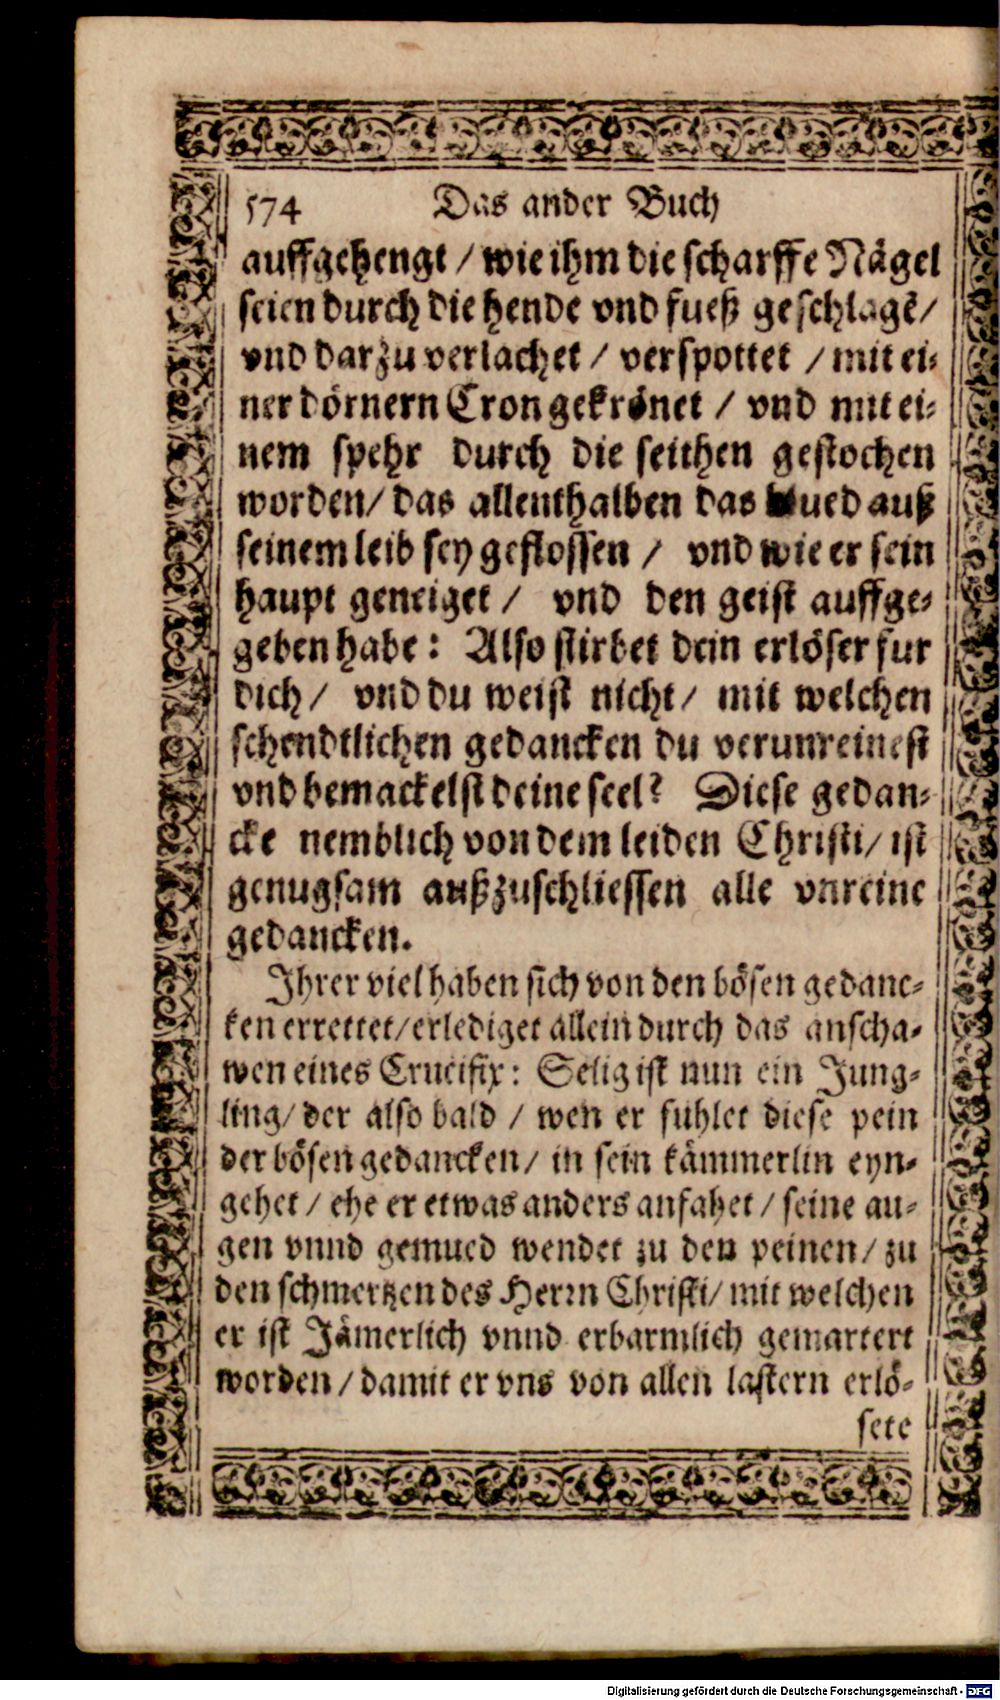 574 Das ander Buch
auffgehengt / wie ihm die scharffe Nägel
seien durch die hende vnd fueß geschlagẽ /
vnd darzu verlachet / verspottet / mit ei-
ner dörnern Cron gekrönet / vnd mit ei-
nem spehr durch die seithen gestochen
worden / das allenthalben das blued auß
seinem leib sey geflossen / vnd wie er sein
haupt geneiget / vnd den geist auffge-
geben habe: Also stirbet dein erlöser fur
dich / vnd du weist nicht / mit welchen
schendtlichen gedancken du verunreinest
vnd bemackelst deine seel? Diese gedan-
cke nemblich von dem leiden Christi / ist
genugsam außzuschliessen alle vnreine
gedancken.
Ihrer viel haben sich von den bösen gedanc-
ken errettet / erlediget allein durch das anscha-
wen eines Crucifix: Selig ist nun ein Jung-
ling / der also bald / wen er fuhlet diese pein
der bösen gedancken / in sein kämmerlin eyn-
gehet / ehe er etwas anders anfahet / seine au-
gen vnnd gemued wendet zu den peinen / zu
den schmertzen des Herrn Christi / mit welchen
er ist Jämerlich vnnd erbarmlich gemartert
worden / damit er vns von allen lastern erlö-
sete
Digitalisierung gefördert durch die Deutsche Forschungsgemeinschaft - DFG